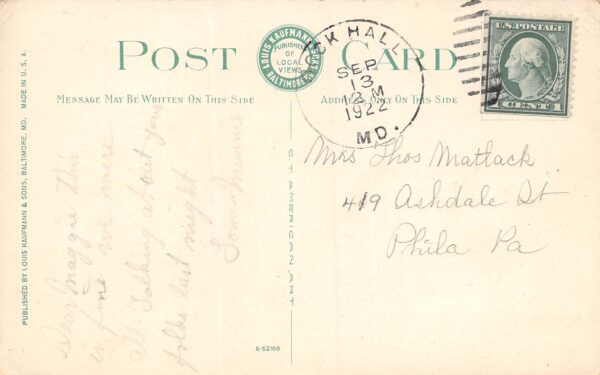 POST CARD
LOUIS KAUFMANN & SONS
PUBLISHERS OF LOCAL VIEWS
BALTIMORE, MD.
ROCK HALL
SEP
13
M
1922
MD.
U.S. POSTAGE
1 CENT 1
MESSAGE MAY BE WRITTEN ON THIS SIDE
ADDRESS ONLY ON THIS SIDE
PUBLISHED BY LOUIS KAUFMANN & SONS, BALTIMORE, MD. MADE IN U. S. A.
Dear Maggie this
is fine we were
all talking about your
folks last night
Love Minnie
Mrs Thos Matlack
419 Ashdale St
Phila Pa
AMERICAN ART
A-52168